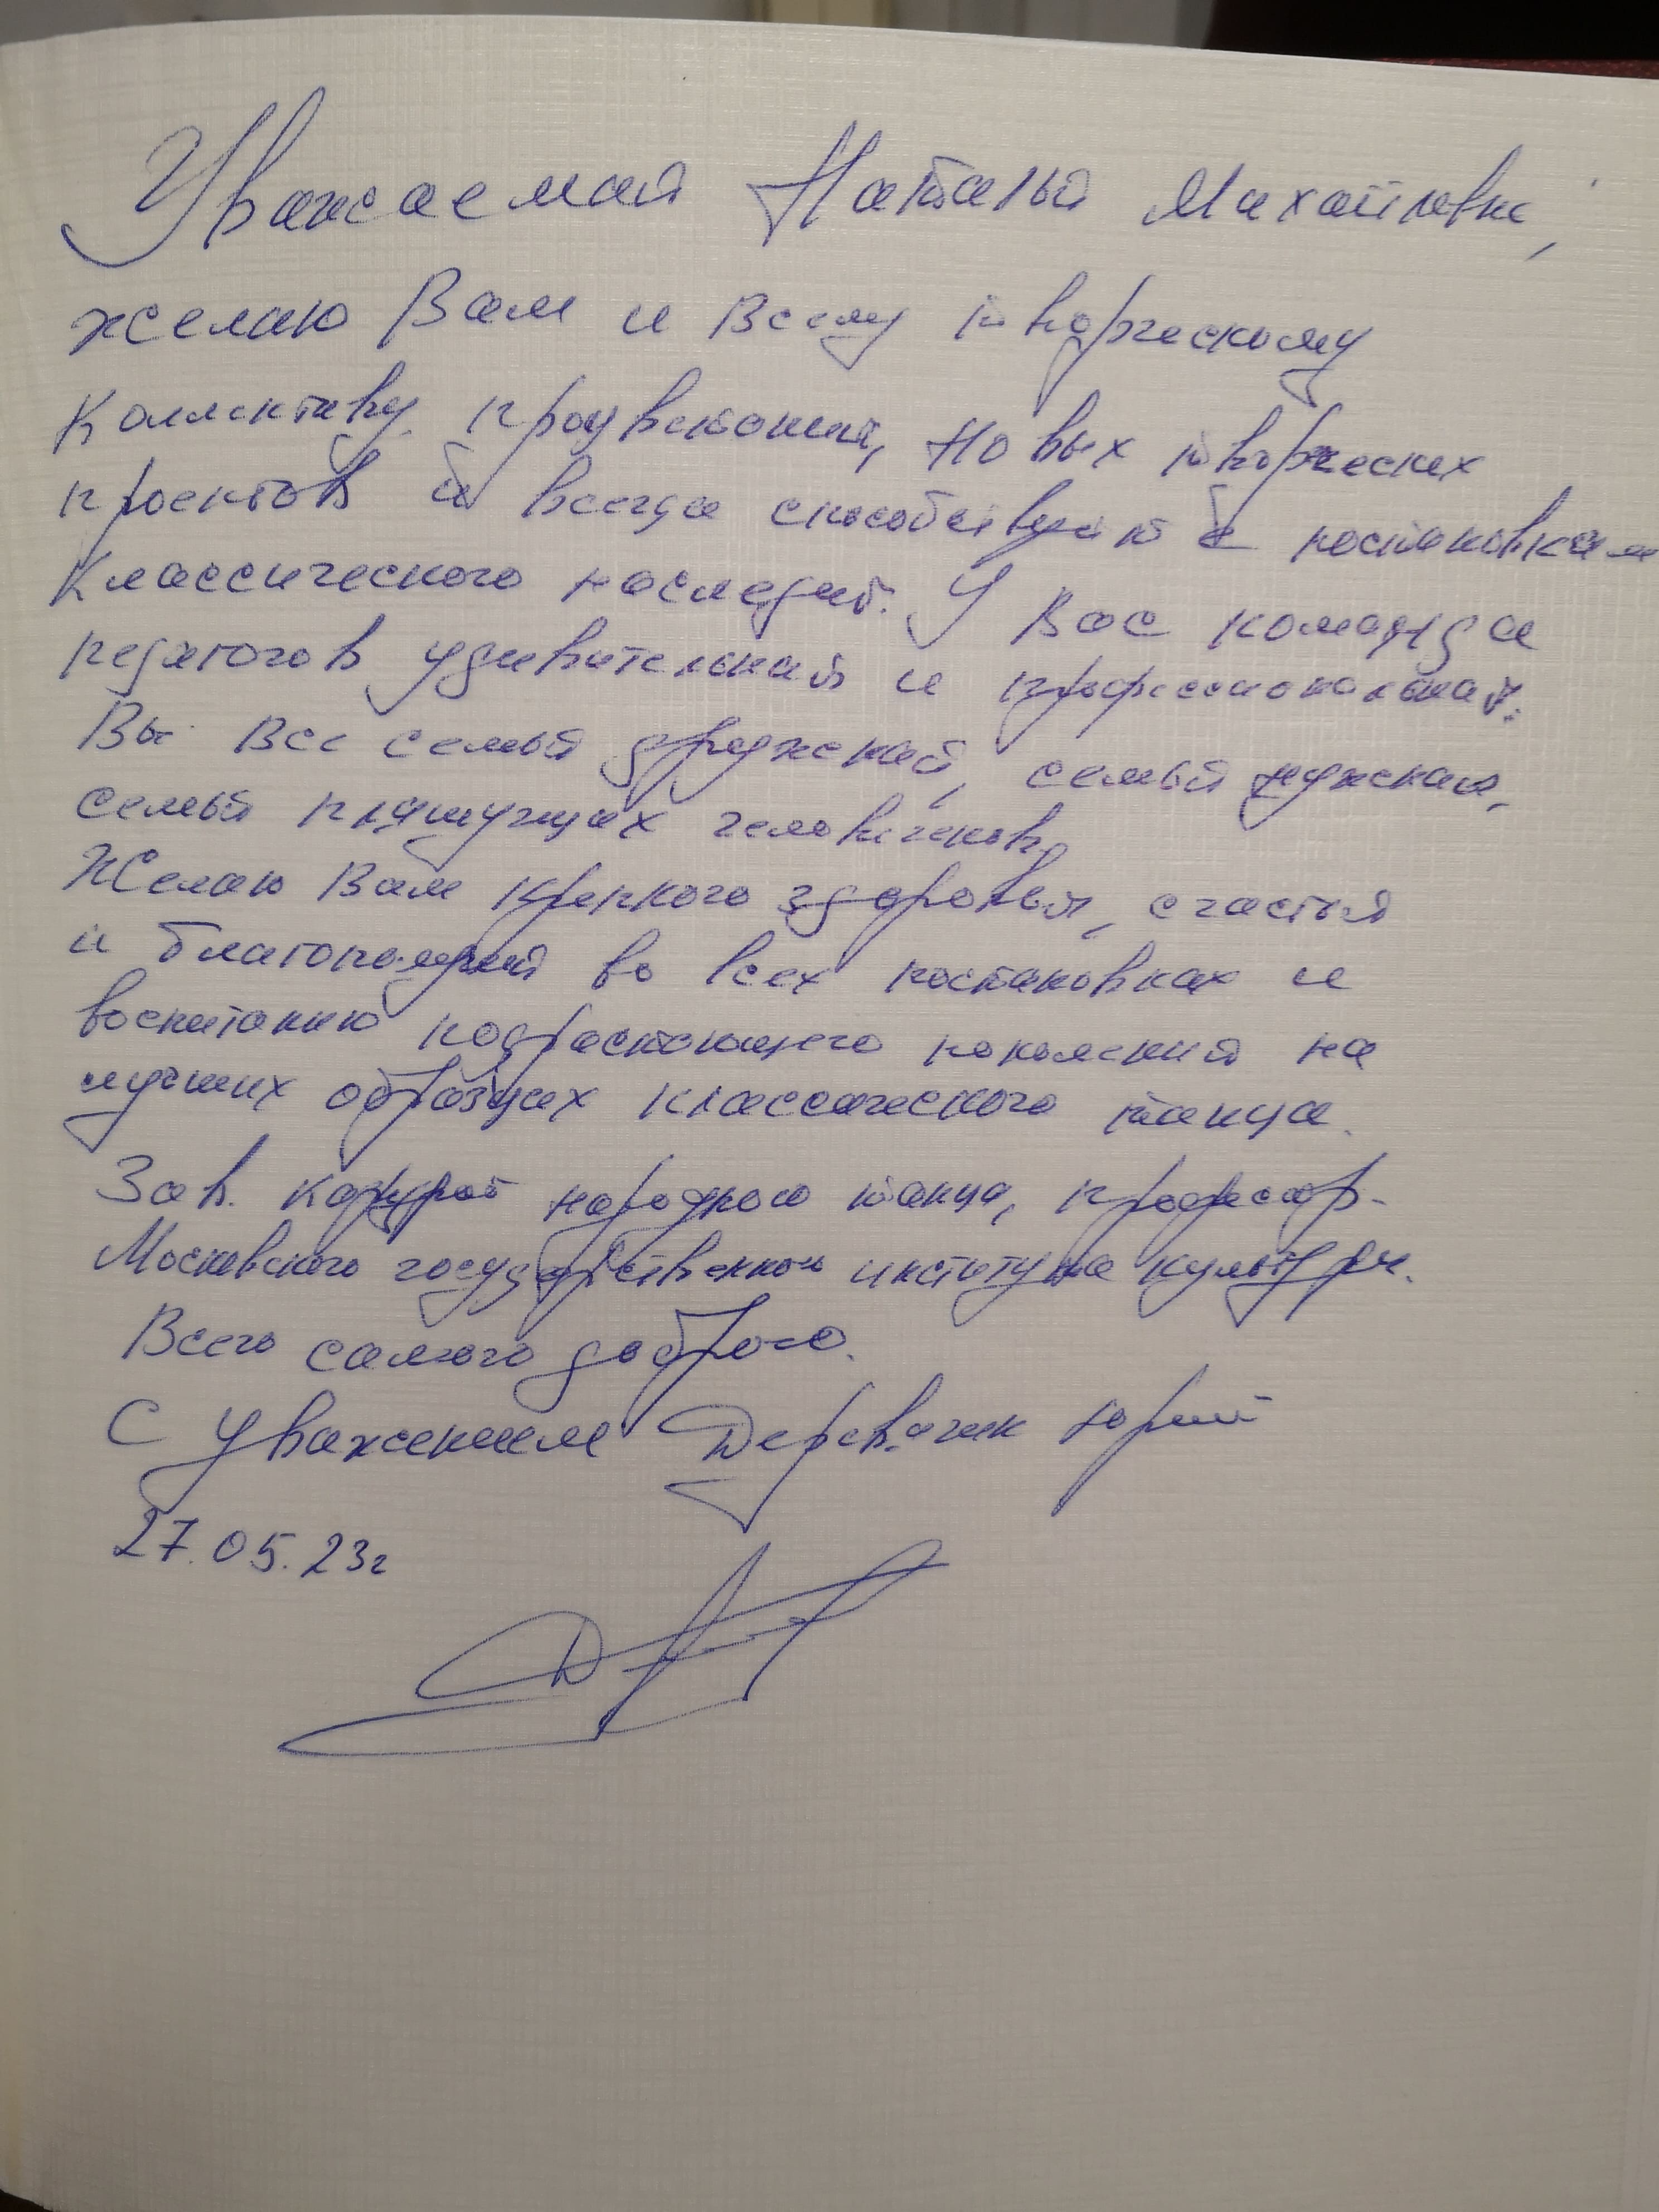 Уважаемая Наталья Михайловна,
желаю Вам и Всему творческому
Коллективу процветания, Новых творческих
проектов и всегда способствуют в постановкам
Классического наследия. У Вас команда
педагогов удивительная и профессиональная.
Вы Все семья дружная, семья нужная,
семья пляшущих человечков,
Желаю Вам крепкого здоровья, счастья
и благополучия во всех постановках и
воспитанию подрастающего поколения на
лучших образцах классического танца.
Зав. кафедрой народного танца, профессор
Московского государственного института культуры.
Всего самого доброго.
С уважением Деревягин Юрий
27.05.23г